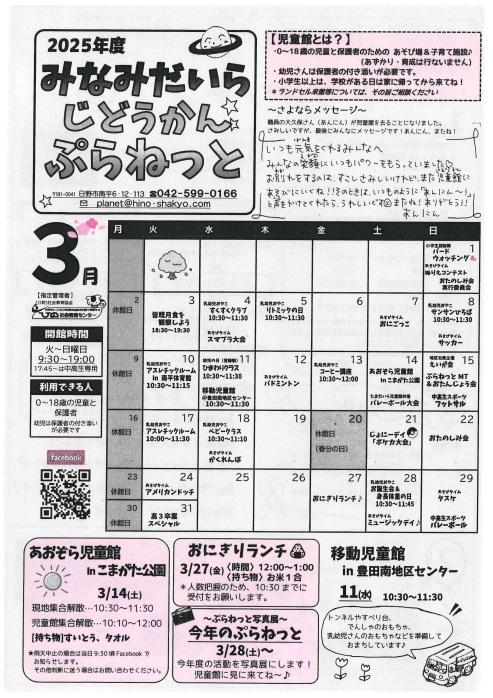 2025年度
みなみだいら
じどうかん
ぷらねっと
〒191-0041 日野市南平6-12-113 ☎042-599-0166
✉ planet@hino-shakyo.com
【児童館とは？】
・0～18歳の児童と保護者のための あそび場＆子育て施設♪
（あずかり・育成は行ないません）
・幼児さんは保護者の付き添いが必要です。
・小学生以上は、学校がある日は家に帰ってから来てね！
＊ランドセル来館等については、その旨ご相談ください
～さよならメッセージ～
職員の大久保さん（あんにん）が児童館を去ることになりました。
さみしいですが、最後にみんなにメッセージです！あんにん、またね！
いつも元気をくれるみんなへ
みんなの笑顔にいつもパワーをもらっていました♡
お別れをするのは、すこしさみしいけれど、また児童館に
あそびにいくね！！そのときは、いつものように「あんにん〜！」
と声をかけてくれたら、うれしいです またね！ありがとう!!
あんにん
3月
【指定管理者】
社会教育センター
開館時間
火～日曜日
9:30～19:00
17:45～は中高生専用
利用できる人
0～18歳の児童と
保護者
幼児は保護者の付き添い
が必要です
facebook
月 火 水 木 金 土 日
1
バード
ウォッチング
あそびタイム
ぬりえコンテスト
おたのしみ会
実行委員会
2
休館日
3
皆既月食を
観察しよう
18:30～19:30
4
乳幼児おやこ
すくすくクラブ
10:30～11:30
あそびタイム
スマブラ大会
5
乳幼児おやこ
リトミックの日
10:30～11:30
6
7
あそびタイム
おにごっこ
8
乳幼児おやこ
サンサンひろば
10:30～11:30
あそびタイム
サッカー
9
休館日
10
乳幼児おやこ
アスレチックルーム
in 南平体育館
10:30～11:15
11
ひまわりクラス
10:30～11:30
移動児童館
@豊田南地区センター
10:30～11:30
12
あそびタイム
バドミントン
13
乳幼児おやこ
コーヒー講座
10:30～12:00
14
あおぞら児童館
in こまがた公園
バレーボール大会
15
えいが会
ぷらねっと MT
＆おたんじょう会
中高生スポーツ
フットサル
16
休館日
17
乳幼児おやこ
アスレチックルーム
10:00～11:30
18
乳幼児おやこ
ベビークラス
10:30～11:10
あそびタイム
かくれんぼ
19
20
休館日
（春分の日）
21
じょにーデイ
「ポケカ大会」
22
おたのしみ会
23
休館日
24
あそびタイム
アメリカンドッヂ
25
26
27
おにぎりランチ♪
28
乳幼児おやこ
お誕生会＆
身長体重の日
10:30～11:45
あそびタイム
ミュージックデイ♪
29
あそびタイム
タスケ
中高生スポーツ
バレーボール
30
休館日
31
高3卒業
スペシャル
あおぞら児童館
in こまがた公園
3/14(土)
現地集合解散…10:30～11:30
児童館集合解散…10:10～12:00
[持ち物]すいとう、タオル
★雨天中止の場合は当日9:30 Facebook で
お知らせします。
その他判断に迷う場合はお問い合わせください。
おにぎりランチ
3/27(金)〈時間〉12:00～1:00
〈持ち物〉お米1合
＊人数把握のため、10:30 までに
受付をお願いします。
～ぷらねっと写真展～
今年のぷらねっと
3/28(土)～
今年度の活動を写真展にします！
児童館に見に来てね～♪
移動児童館
in 豊田南地区センター
11(水) 10:30～11:30
トンネルやすべり台、
でんしゃのおもちゃ、
乳幼児さんのおもちゃなどを準備して
おまちしています♪